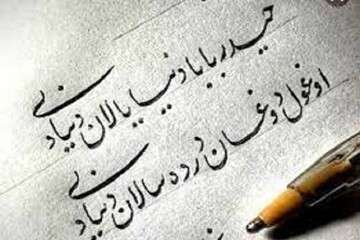 حیدر بابا دنیا یالان دنیادی
اوغول دوغان درده سالان دنیادی